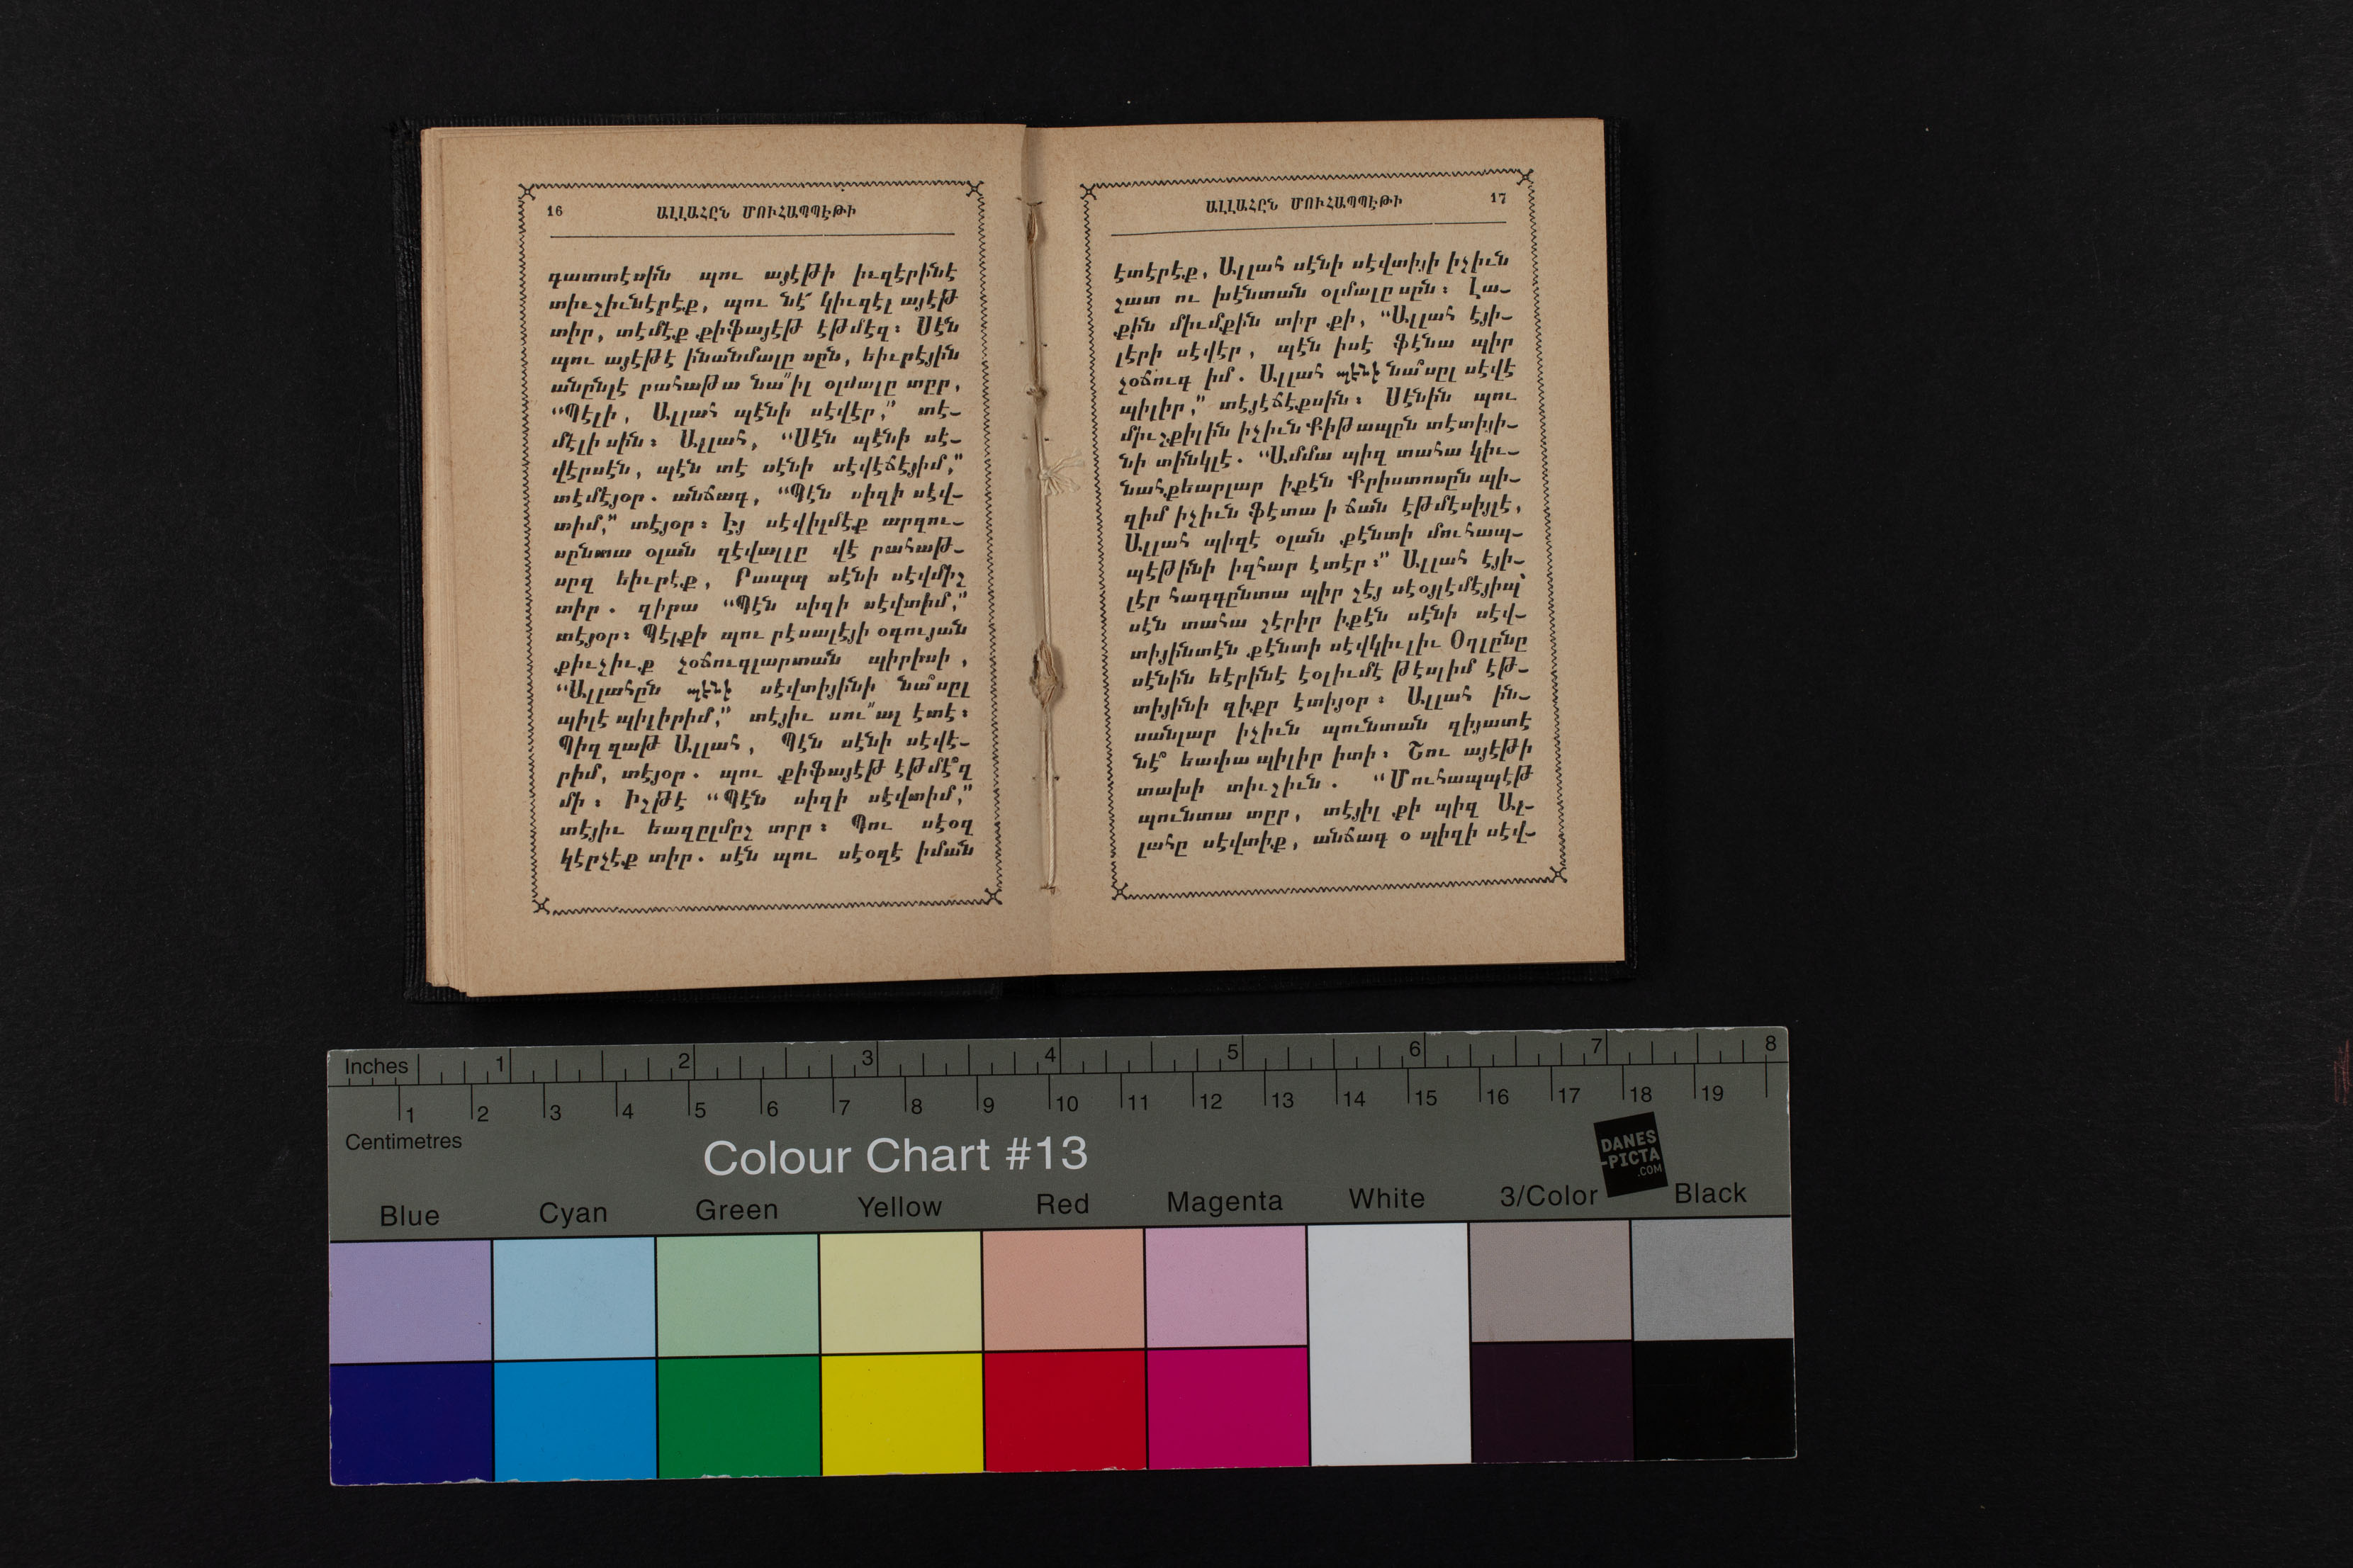 16 ԱԼԼԱՀԸՆ ՄՈՒՀԱՊՊԷԹԻ
գատտէսին պու այէթի իւզէրինէ
տիւշիւնէրէք, պու նէ՛ կիւզէլ այէթ
տիր, տէմէք քիֆայէթ էթմէզ։ Սէն
պու այէթէ ինանմալը սըն, եիւրէյին
անընլէ րահաթա նա՞՛իլ օլմալը տըր,
“Պէլի, Ալլահ պէնի սէվէր,” տէ–
մէլի սին։ Ալլահ, “Սէն պէնի սէ–
վէրսէն, պէն տէ սէնի սէվէճէյիմ,”
տէմէյօր. անճագ, “Պէն սիզի սէվ–
տիմ,” տէյօր։ Էյ սէվիլմէք արզու–
սընտա օլան զէվալլը վէ րահաթ–
սըզ եիւրէք, Րապպ սէնի սէվմիշ
տիր. զիրա “Պէն սիզի սէվտիմ,”
տէյօր։ Պէլքի պու րէսալէյի օգույան
քիւչիւք չօճուգլարտան պիրիսի,
“Ալլահըն պէնի սէվտիյինի նա՞սըլ
պիլէ պիլիրիմ,” տէյիւ սու՛՛ալ էտէ։
Պիզ զաթ Ալլահ, Պէն սէնի սէվէ–
րիմ, տէյօր. պու քիֆայէթ էթմէ՞զ
մի։ Իշթէ “Պէն սիզի սէվտիմ,”
տէյիւ եազըլմըշ տըր։ Պու սէօզ
կէրչէք տիր. սէն պու սէօզէ իման
ԱԼԼԱՀԸՆ ՄՈՒՀԱՊՊԷԹԻ 17
էտէրէք, Ալլահ սէնի սէվտիյի իչիւն
շատ ու խէնտան օլմալը սըն։ Լա–
քին միւմքին տիր քի, “Ալլահ էյի–
լէրի սէվէր, պէն իսէ ֆէնա պիր
չօճուգ իմ. Ալլահ պէնի նա՞սըլ սէվէ
պիլիր,” տէյէճէքսին։ Սէնին պու
միւշքիլին իչիւն Քիթապըն տէտիյի–
նի տինկլէ. “Ամմա պիզ տահա կիւ–
նահքեարլար իքէն Քրիստոսըն պի–
զիմ իչիւն ֆէտա ի ճան էթմէսիյլէ,
Ալլահ պիզէ օլան քէնտի մուհապ–
պէթինի իզհար էտէր։” Ալլահ էյի–
լէր հագգընտա պիր շէյ սէօյլէմէյիպ՝
սէն տահա շէրիր իքէն սէնի սէվ–
տիյինտէն քէնտի սէվկիւլիւ Օղլընը
սէնին եէրինէ էօլիւմէ թէսլիմ էթ–
տիյինի զիքր էտիյօր։ Ալլահ ին–
սանլար իչիւն պունտան զիյատէ
նէ՞ եափա պիլիր իտի։ Շու այէթի
տախի տիւշիւն. “Մուհապպէթ
պունտա տըր, տէյիլ քի պիզ Ալ–
լահը սէվտիք, անճագ օ պիզի սէվ–
Inches 1 2 3 4 5 6 7 8
1 2 3 4 5 6 7 8 9 10 11 12 13 14 15 16 17 18 19
Centimetres
Colour Chart #13
DANES
-PICTA
.COM
Blue Cyan Green Yellow Red Magenta White 3/Color Black